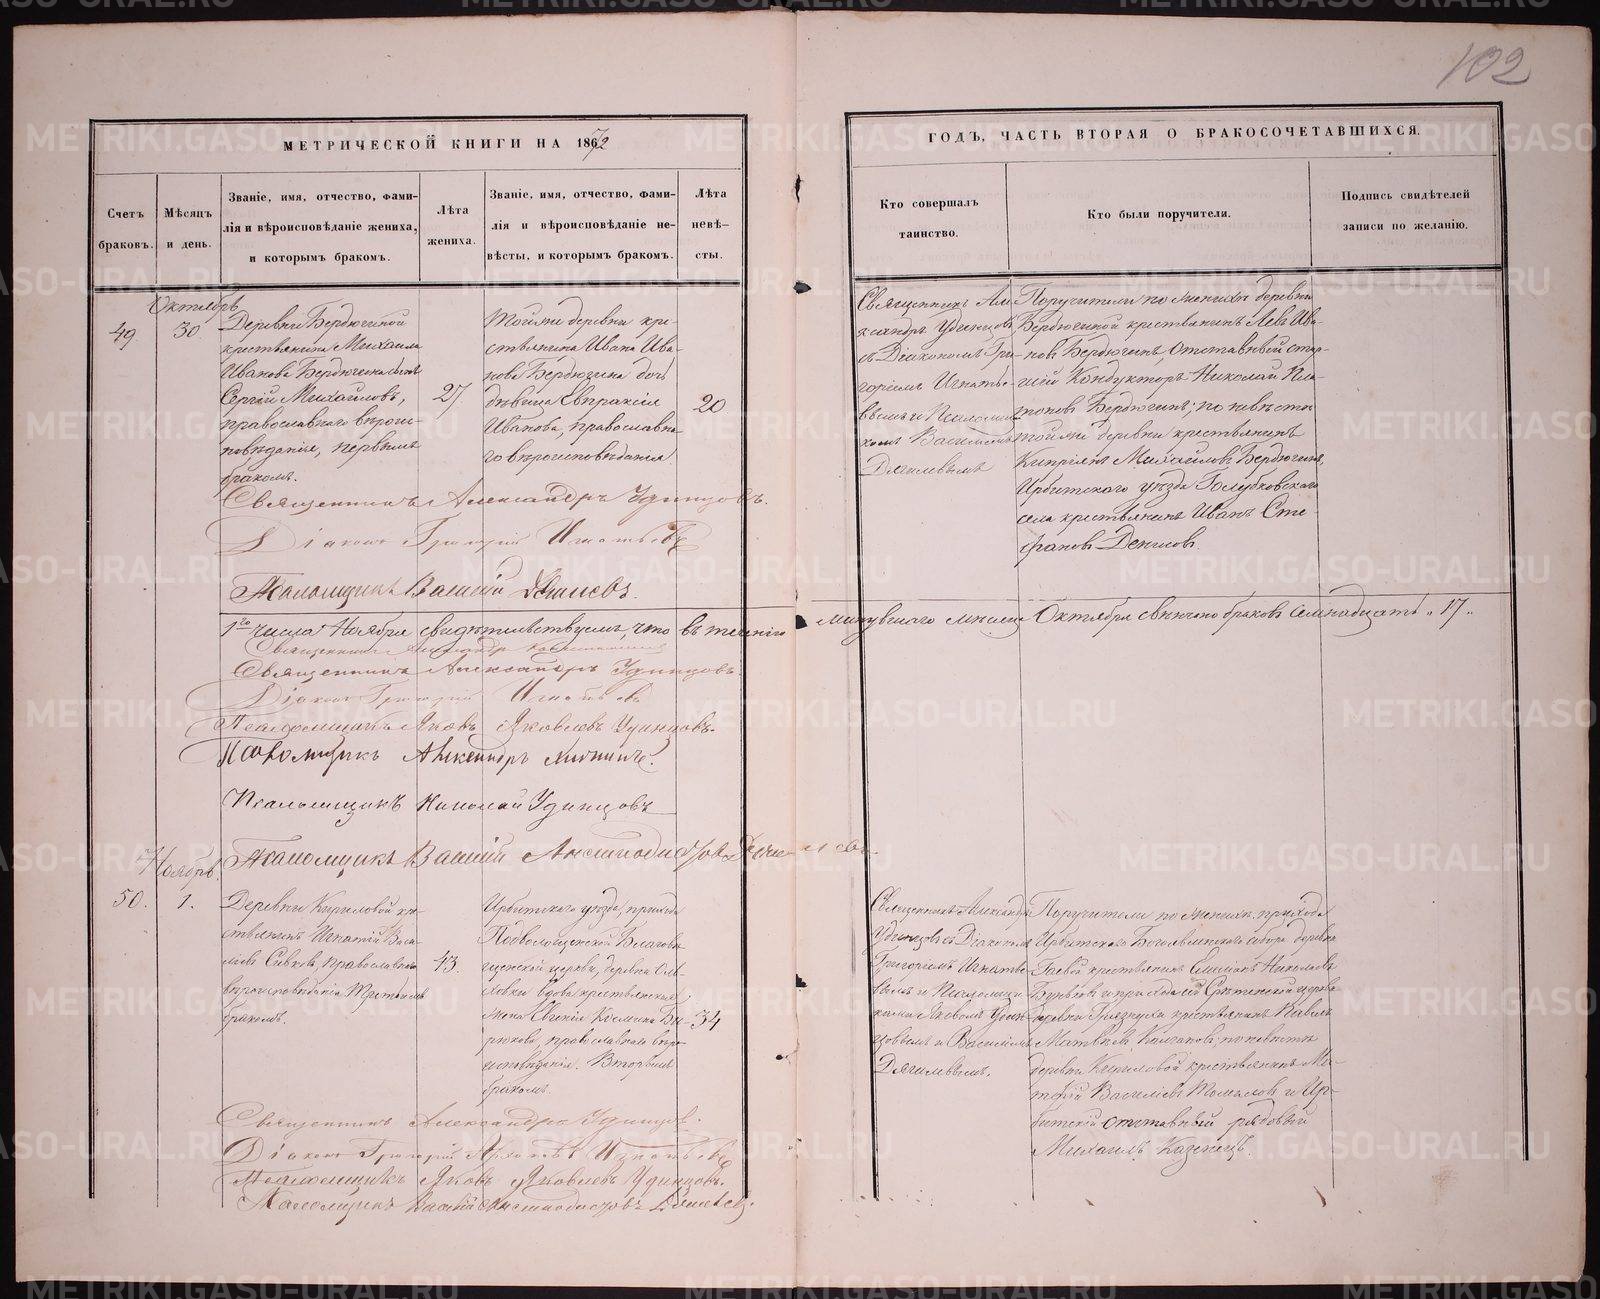 102
МЕТРИЧЕСКОЙ КНИГИ НА 1872
ГОДЪ, ЧАСТЬ ВТОРАЯ О БРАКОСОЧЕТАВШИХСЯ.
Счетъ браковъ.
Мѣсяцъ и день.
Званіе, имя, отчество, фами-
лія и вѣроисповѣданіе жениха,
и которымъ бракомъ.
Лѣта
жениха.
Званіе, имя, отчество, фами-
лія и вѣроисповѣданіе не-
вѣсты, и которымъ бракомъ.
Лѣта
невѣ-
сты.
Кто совершалъ
таинство.
Кто были поручители.
Подпись свидѣтелей
записи по желанію.
Октябрь
49
30
Деревни Бердюгиной
крестьянина Михаила
Иванова Бердюгина сынъ
Сергій Михайловъ,
православнаго вѣроис-
повѣданія, первымъ
бракомъ.
27
Тойже деревни кре-
стьянина Ивана Ива-
нова Бердюгина дочь
дѣвица Евпраксія
Иванова, православна-
го вѣроисповѣданія
20
Священникъ Але-
ксандръ Удинцовъ
съ Діакономъ Гри-
горіемъ Игнатье-
вымъ и Псаломщи-
комъ Василіемъ
Дягилевымъ
Поручители по женихѣ деревни
Бердюгиной крестьянинъ Левъ Ива-
новъ Бердюгинъ, отставный стар-
шій Кондукторъ Николай Пла-
тоновъ Бердюгинъ; по невѣстѣ
тойже деревни крестьянинъ
Кипріянъ Михайловъ Бердюгинъ,
Ирбитскаго уѣзда Голубковскаго
села крестьянинъ Иванъ Сте-
фановъ Денисов
Священникъ Александръ Удинцовъ.
Діаконъ Григорій Игнатьевъ
Псаломщикъ Василій Дягилевъ.
1го числа Ноября свидѣтельствуемъ, что въ теченіе минувшаго мѣсяца Октября свѣнчано браковъ семнадцать „17„
Священникъ Александръ
Священникъ Александръ Удинцовъ.
Діаконъ Григорій Игнатьевъ
Псаломщикъ Яковъ Яковлевъ Удинцовъ.
Псаломщикъ Александръ
Псаломщикъ Николай Удинцовъ
Псаломщикъ Василій Дягилевъ.
Ноябрь.
50.
1.
Деревни Кириловой кре-
стьянинъ Игнатій Васи-
ліевъ Сивковъ, православнаго
вѣроисповѣданія Третьимъ
бракомъ.
43.
Ирбитскаго уѣзда, прихода
Подволошенской Благовѣ-
щенской церкви, деревни Оль-
ховки вдова крестьянская
жена Евгенія Космина Би-
рюкова, православнаго вѣро-
исповѣданія. Вторымъ
бракомъ.
34
Священникъ Александръ
Удинцовъ съ Діакономъ
Григоріемъ Игнатье-
вымъ и Псаломщи-
ками Яковомъ Удин-
цовымъ и Василіемъ
Дягилевымъ.
Поручители по женихѣ, прихода
Ирбитскаго Богоявленскаго собора деревни
Гаевой крестьянинъ Симеонъ Николаевъ
Буньковъ и прихода Срѣтенской церкви
деревни Грязнухи крестьянинъ Павелъ
Матвѣевъ; по невѣстѣ
деревни Кириловой крестьянинъ Ма-
тфій Василіевъ Томиловъ и Ир-
битскій отставный рядовый
Михаилъ Казанецъ.
Священникъ Александръ Удинцовъ.
Діаконъ Григорій Игнатьевъ
Псаломщикъ Яковъ Яковлевъ Удинцовъ.
Псаломщикъ Василій Дягилевъ.
METRIKI.GASO-URAL.RU